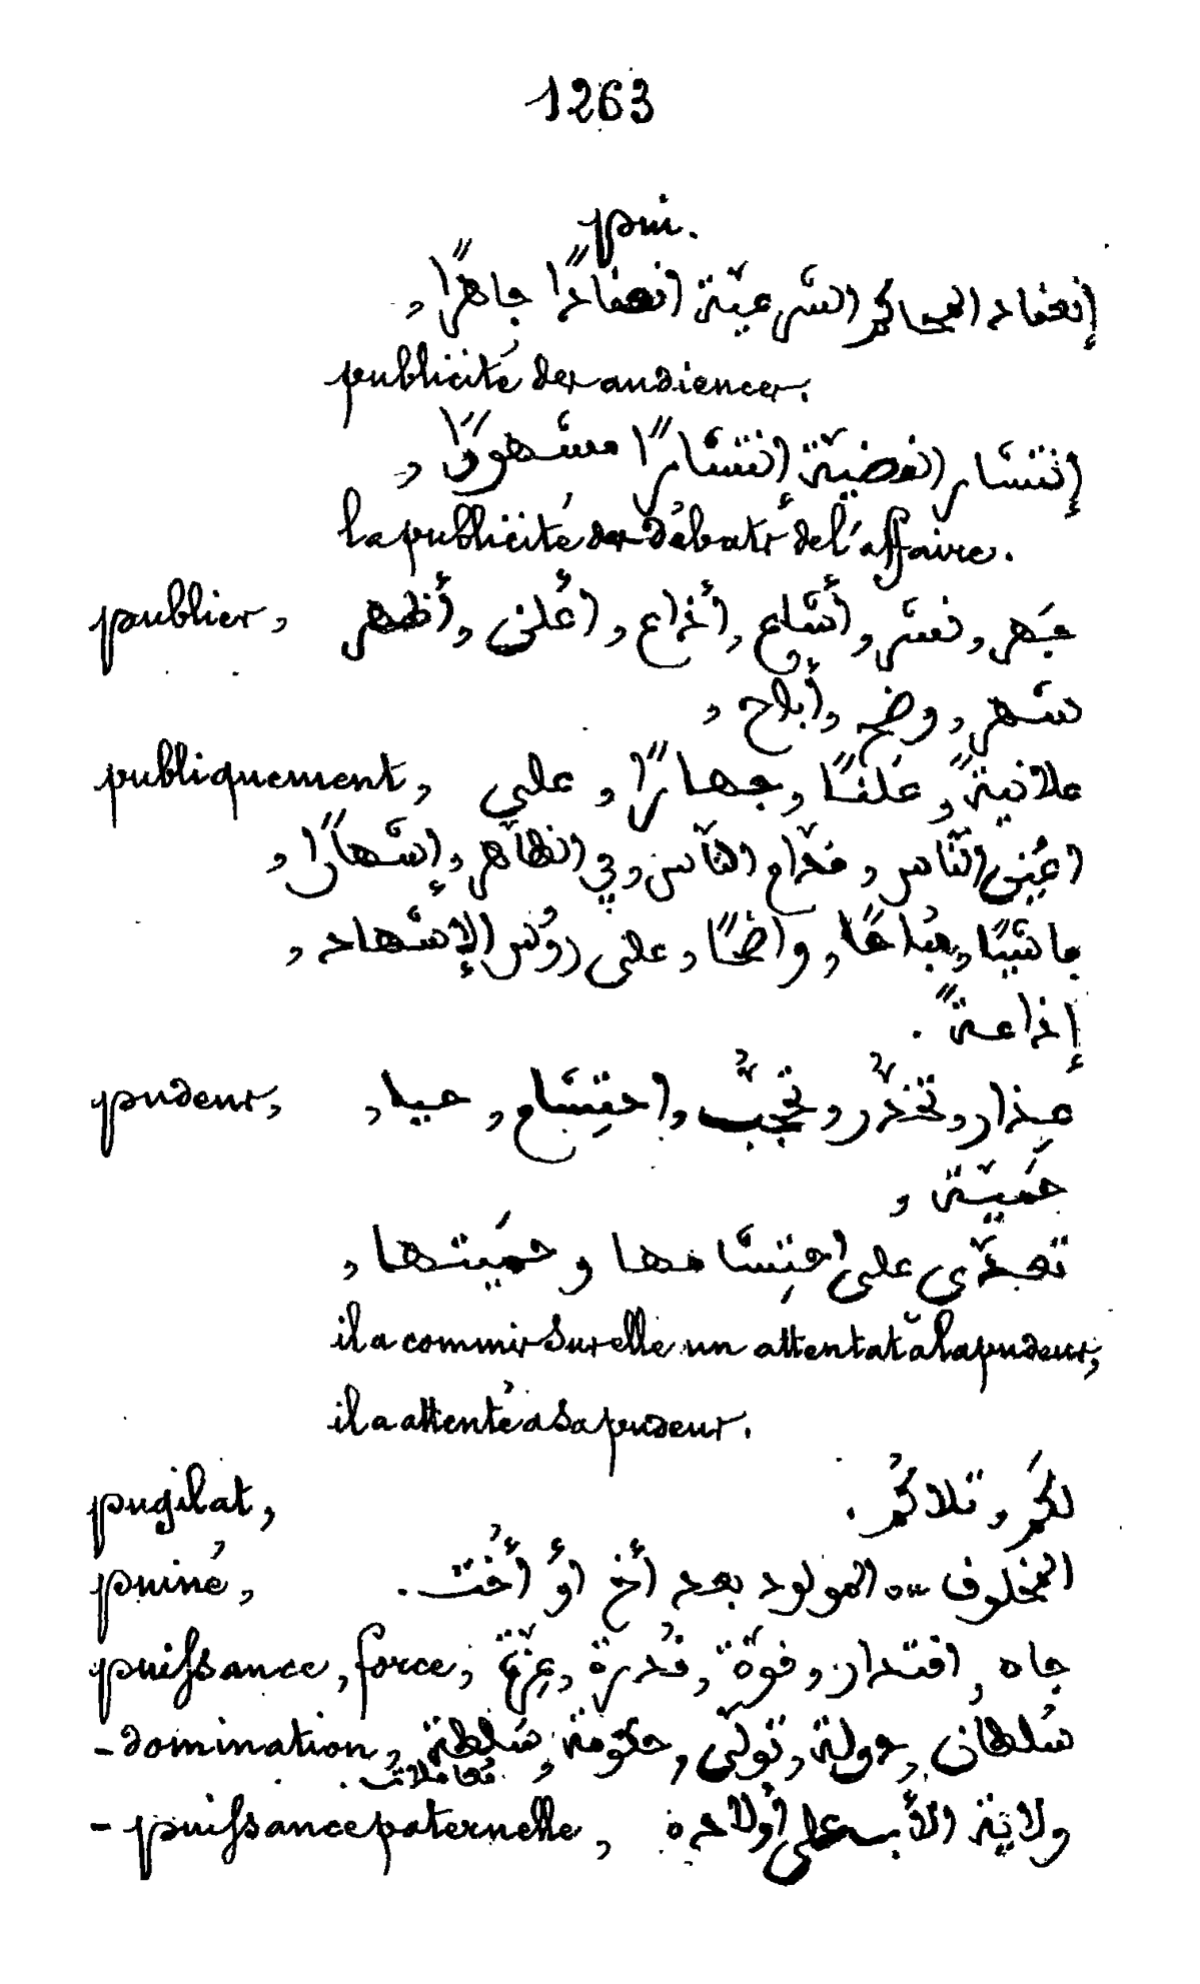 1263
pui.
إنعقاد المحاكم الشرعيّة انعقادًا جاهرًا,
publicité des audiences.
إنتشار القضيّة انتشارًا مشهورًا,
la publicité des débats de l'affaire.
publier, جَهر, نشّر, أشاع, أذاع, اعْلن, أظهر
شهر, وضح, أباح,
publiquement, علانيةً, عَلنًا, جهارًا, على
اعْيُن النّاس, قدّام النّاس, في الظّاهر, إشهارًا,
مُباحًا, واضحًا, على رؤس الإشهاد,
إذاعةً.
pudeur, عِذار, تخذّر, تحجُّب, احتِشام, حيا,
حَميّة,
تعدّى على احتِشامها و حميَتها,
il a commis sur elle un attentat à la pudeur,
il a attenté à sa pudeur.
pugilat, لكَم, تلاكُم.
puiné, المخلوف ... المولود بعد أخ اوْ أُخْت.
puissance, force, جاه, اقتدار, قوّة, قُدرة, عِزّة,
- domination, سُلطان, دولة, تولّى, حكومة, سَلطة,
معاملات.
- puissance paternelle, ولاية الأب على أولاده